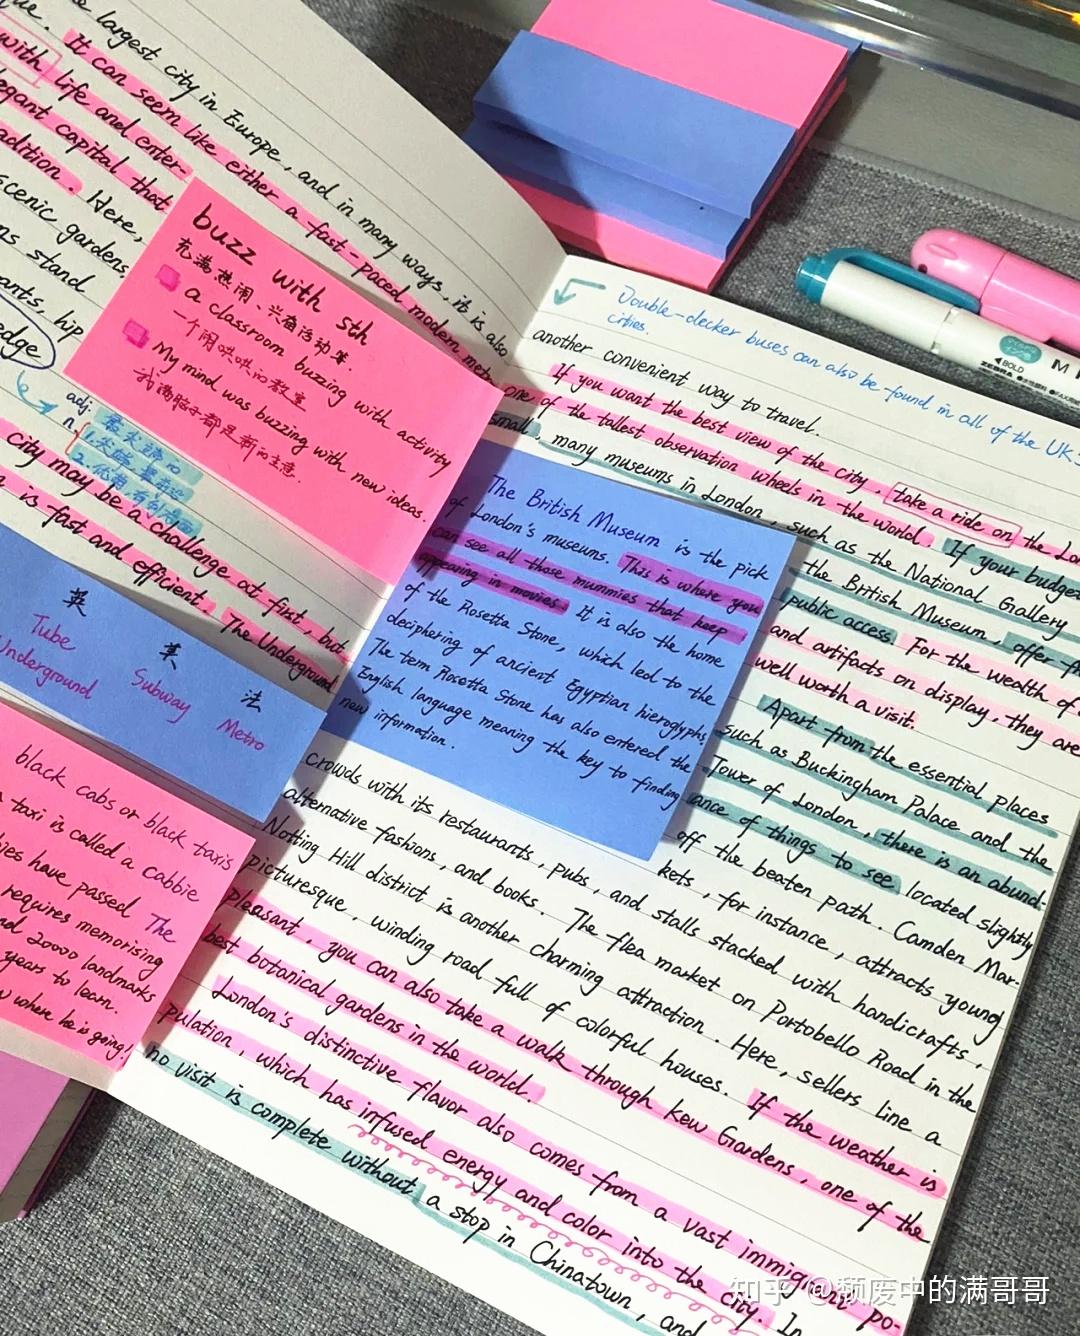 he largest city in Europe, and in many ways, it is also
que. It can seem like either a fast-paced modern met
with life and enter-
legant capital that
adition. Here,
scenic gardens
ns stand
ants, hip
edge
buzz with sth
充满热闹、兴奋活动等.
a classroom buzzing with activity
一个闹哄哄的教室
My mind was buzzing with new ideas.
我满脑子都是新的主意.
adj.
n.
city may be a challenge at first, but
is fast and efficient. The Underground
英 英 法
Tube Subway Metro
Underground
black cabs or black taxis
taxi is called a cabbie
bies have passed The
requires memorising
nd 20000 landmarks
years to learn.
w where he is going!
Double-decker buses can also be found in all of the UK's
cities.
another convenient way to travel.
If you want the best view of the city, take a ride on the Lon
one of the tallest observation wheels in the world. If your budge
small, many museums in London, such as the National Gallery
the British Museum, offer f
public access. For the wealth of
and artifacts on display, they are
well worth a visit.
The British Museum is the pick
of London's museums. This is where you
can see all those mummies that keep
appearing in movies. It is also the home
of the Rosetta Stone, which led to the
deciphering of ancient Egyptian hieroglyphs.
The term Rosetta Stone has also entered the
English language meaning the key to finding
new information.
Apart from the essential places
such as Buckingham Palace and the
Tower of London, there is an abund-
ance of things to see located slightly
off the beaten path. Camden Mar-
kets, for instance, attracts young
crowds with its restaurants, pubs, and stalls stacked with handicrafts,
alternative fashions, and books. The flea market on Portobello Road in the
Notting Hill district is another charming attraction. Here, sellers line a
picturesque, winding road full of colorful houses. If the weather is
pleasant, you can also take a walk through Kew Gardens, one of the
best botanical gardens in the world.
London's distinctive flavor also comes from a vast immigrant po-
pulation, which has infused energy and color into the city. In
no visit is complete without a stop in Chinatown, and
BOLD
ZEBRA
M
知乎 @颓废中的满哥哥